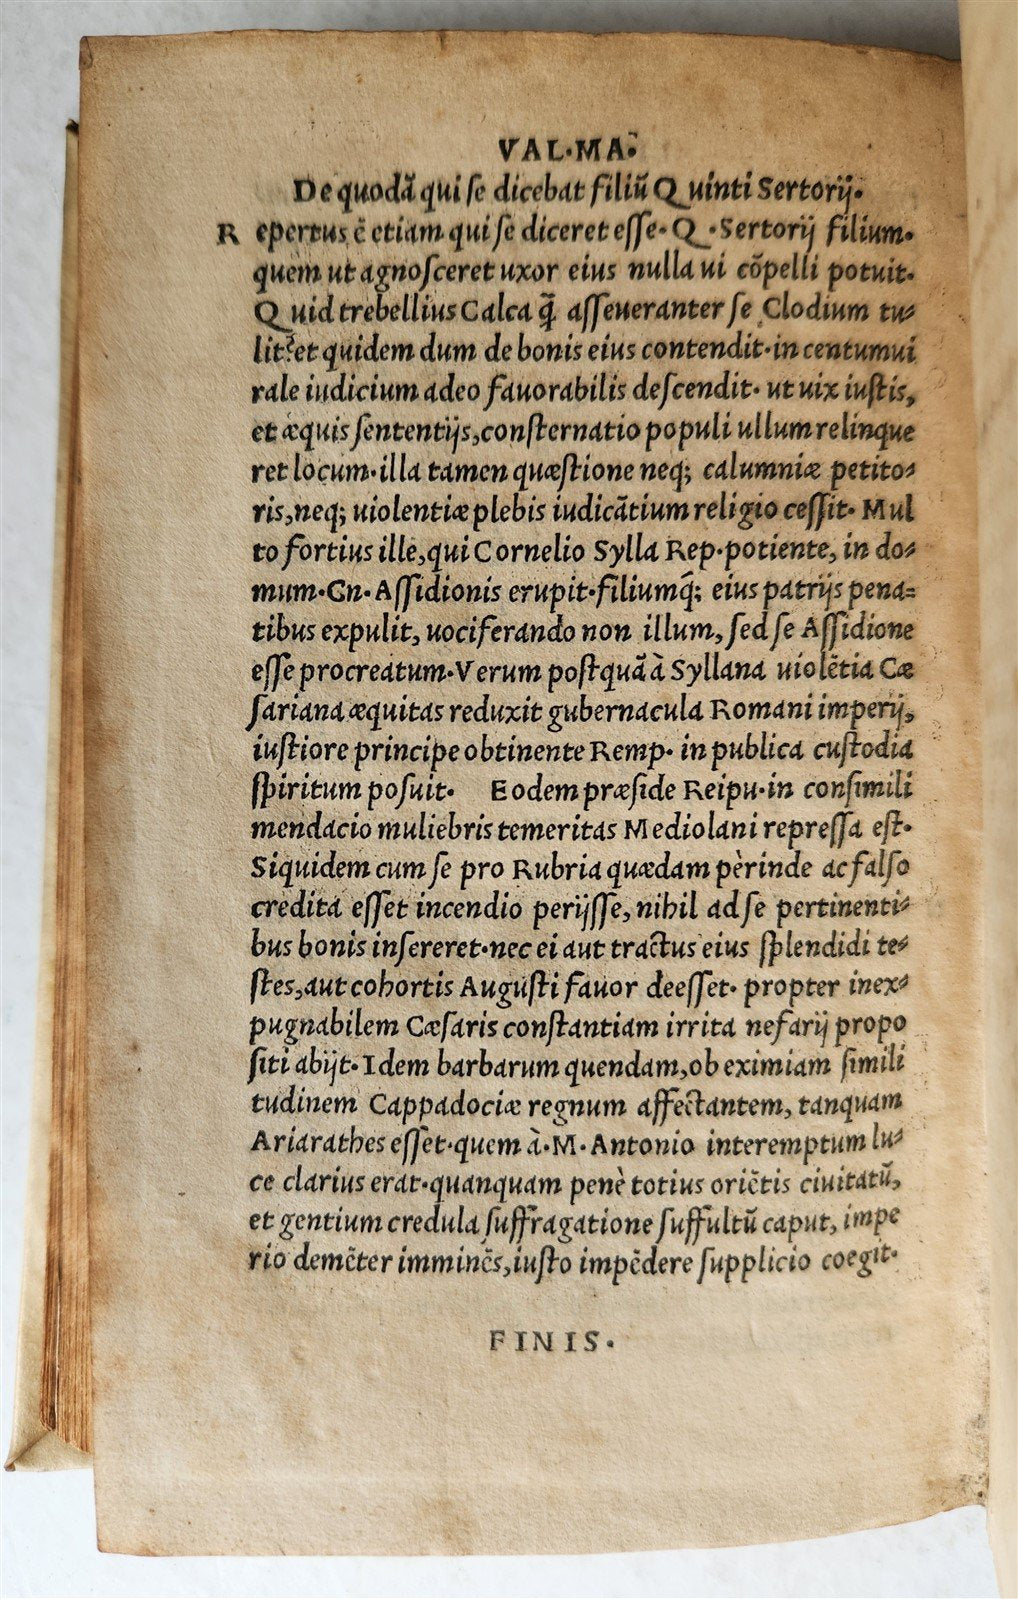 VAL·MA·
De quodā qui se dicebat filiū Quinti Sertorij·
Repertus ē etiam qui se diceret esse·Q·Sertorij filium·
quem ut agnosceret uxor eius nulla ui cōpelli potuit·
Quid trebellius Calca q̄ asseueranter se Clodium tu-
lit?et quidem dum de bonis eius contendit·in centumui
rale iudicium adeo fauorabilis descendit· ut uix iustis,
et æquis sententijs,consternatio populi ullum relinque
ret locum·illa tamen quæstione neq; calumniæ petito-
ris,neq; uiolentiæ plebis iudicātium religio cessit· Mul
to fortius ille,qui Cornelio Sylla Rep·potiente, in do-
mum·Cn·Assidionis erupit·filiumq̄; eius patrijs pena-
tibus expulit, uociferando non illum, sed se Assidione
esse procreatum·Verum postquā à Syllana uiolētia Cæ
sariana æquitas reduxit gubernacula Romani imperij,
iustiore principe obtinente Remp· in publica custodia
spiritum posuit· Eodem præside Reipu·in consimili
mendacio muliebris temeritas Mediolani repressa est·
Siquidem cum se pro Rubria quædam pèrinde ac falso
credita esset incendio perijsse, nihil ad se pertinenti-
bus bonis insereret·nec ei aut tractus eius splendidi te-
stes,aut cohortis Augusti fauor deesset· propter inex-
pugnabilem Cæsaris constantiam irrita nefarij propo
siti abijt·Idem barbarum quendam,ob eximiam simili
tudinem Cappadociæ regnum affectantem, tanquam
Ariarathes esset·quem à·M·Antonio interemptum lu-
ce clarius erat·quanquam penè totius oriētis ciuitatū,
et gentium credula suffragatione suffultū caput, impe
rio demēter imminēs,iusto impēdere supplicio coegit·
FINIS·